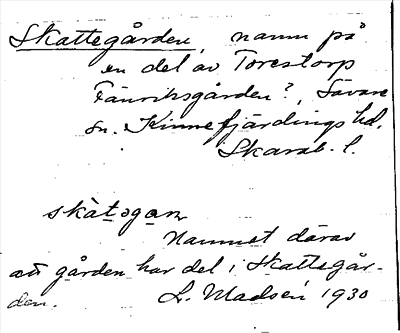 Skattegården, namn på
en del av Torestorp
Fänriksgården?, Sävare
sn. Kinnefjärdings hd.
Skarab. l.
skàtəgan
Namnet därav
att gården har del i Skattegår-
den. L. Madsén 1930